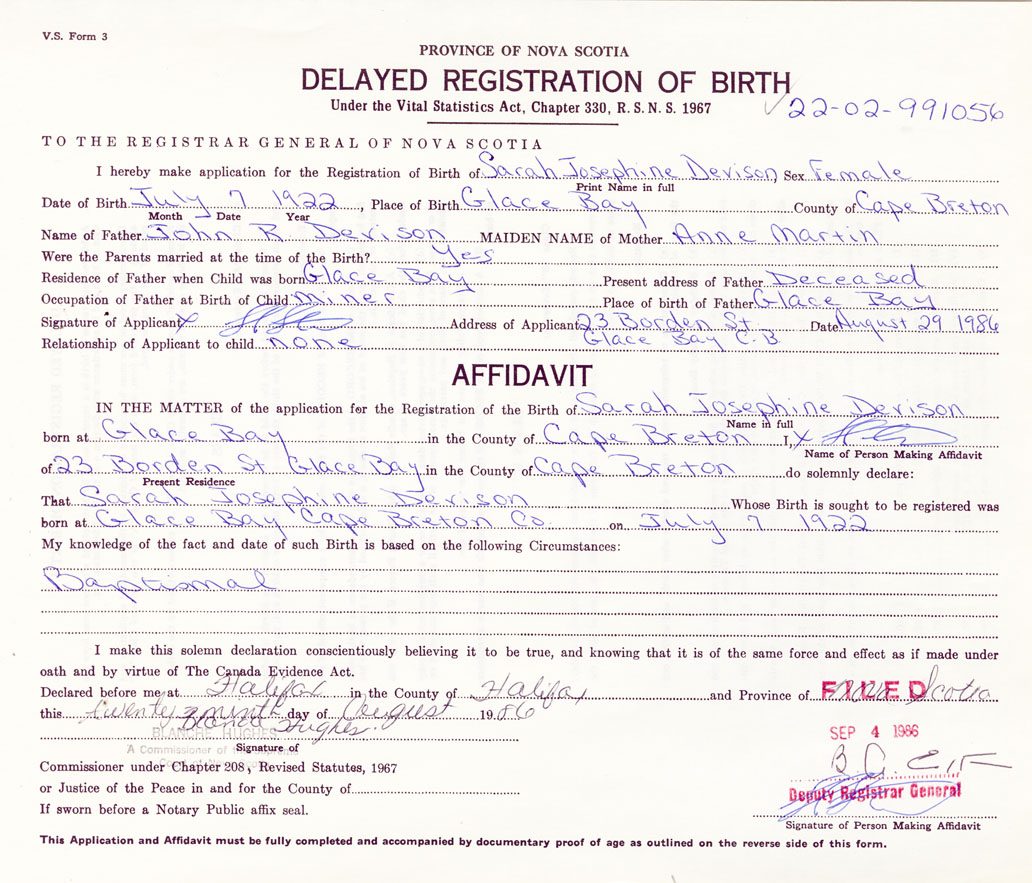 V.S. Form 3
PROVINCE OF NOVA SCOTIA
DELAYED REGISTRATION OF BIRTH
Under the Vital Statistics Act, Chapter 330, R.S.N.S. 1967
22-02-991056
TO THE REGISTRAR GENERAL OF NOVA SCOTIA
I hereby make application for the Registration of Birth of Sarah Josephine Devison, Sex Female
Print Name in full
Date of Birth July 7 1922, Place of Birth Glace Bay County of Cape Breton
Month Date Year
Name of Father John R Devison MAIDEN NAME of Mother Anne Martin
Were the Parents married at the time of the Birth? Yes
Residence of Father when Child was born Glace Bay Present address of Father Deceased
Occupation of Father at Birth of Child miner Place of birth of Father Glace Bay
Signature of Applicant x Address of Applicant 23 Borden St Date August 29 1986
Glace Bay C.B.
Relationship of Applicant to child none
AFFIDAVIT
IN THE MATTER of the application for the Registration of the Birth of Sarah Josephine Devison
Name in full
born at Glace Bay in the County of Cape Breton I, x
Name of Person Making Affidavit
of 23 Borden St Glace Bay in the County of Cape Breton do solemnly declare:
Present Residence
That Sarah Josephine Devison Whose Birth is sought to be registered was
born at Glace Bay Cape Breton Co. on July 7 1922
My knowledge of the fact and date of such Birth is based on the following Circumstances:
Baptismal
I make this solemn declaration conscientiously believing it to be true, and knowing that it is of the same force and effect as if made under
oath and by virtue of The Canada Evidence Act.
Declared before me at Halifax in the County of Halifax and Province of Nova Scotia
FILED
this twenty ninth day of August 1986
SEP 4 1986
Blanche Hughes
BLANCHE HUGHES
A Commissioner of the Supreme
Signature of
Commissioner under Chapter 208, Revised Statutes, 1967
or Justice of the Peace in and for the County of
Deputy Registrar General
If sworn before a Notary Public affix seal.
Signature of Person Making Affidavit
This Application and Affidavit must be fully completed and accompanied by documentary proof of age as outlined on the reverse side of this form.